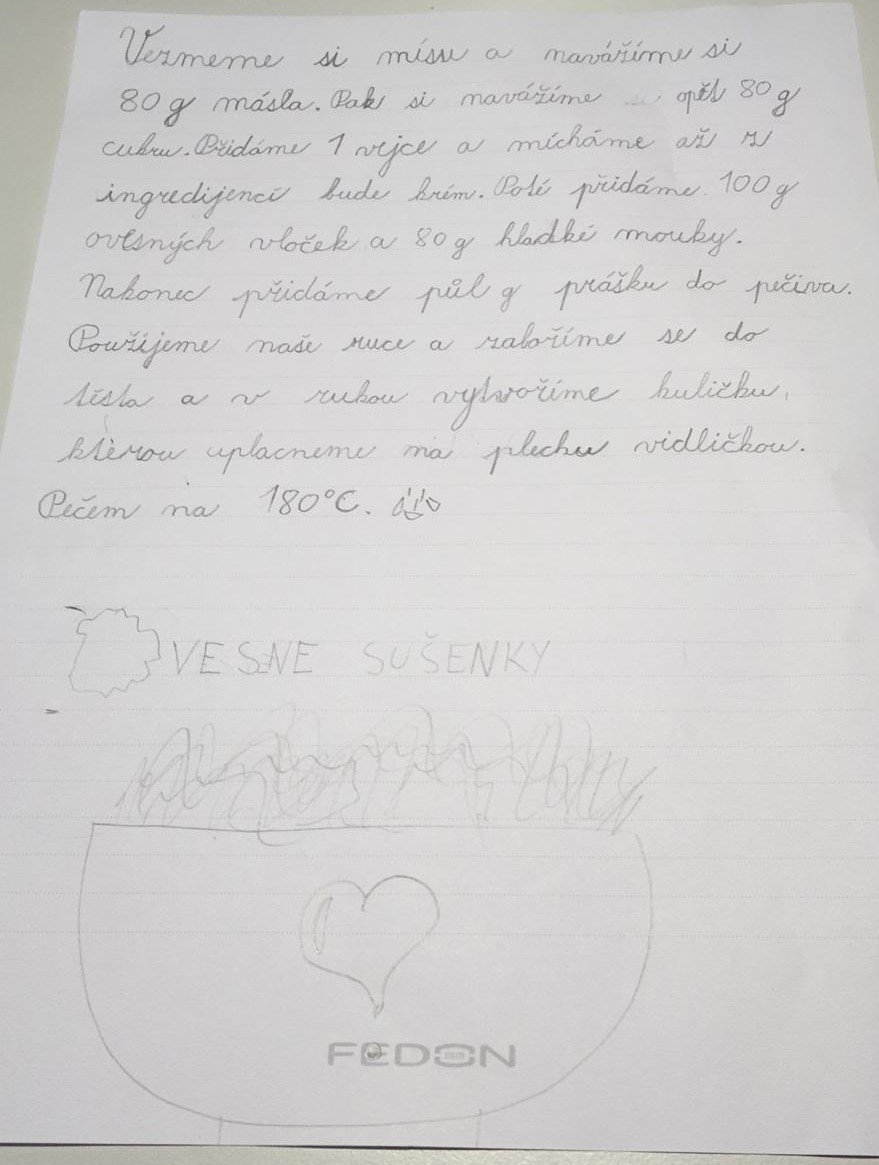 Vezmeme si mísu a navážíme si
80 g másla. Pak si navážíme opět 80 g
cukru. Přidáme 1 vejce a mícháme až z
ingredijencí bude krém. Poté přidáme 100 g
ovesných vloček a 80 g hladké mouky.
Nakonec přidáme půl g prášku do pečiva.
Použijeme naše ruce a zaboříme se do
těsta a v rukou vytvoříme kuličku,
kterou uplacneme na plechu vidličkou.
Pečem na 180°C.
OVESNE SUŠENKY
FEDON